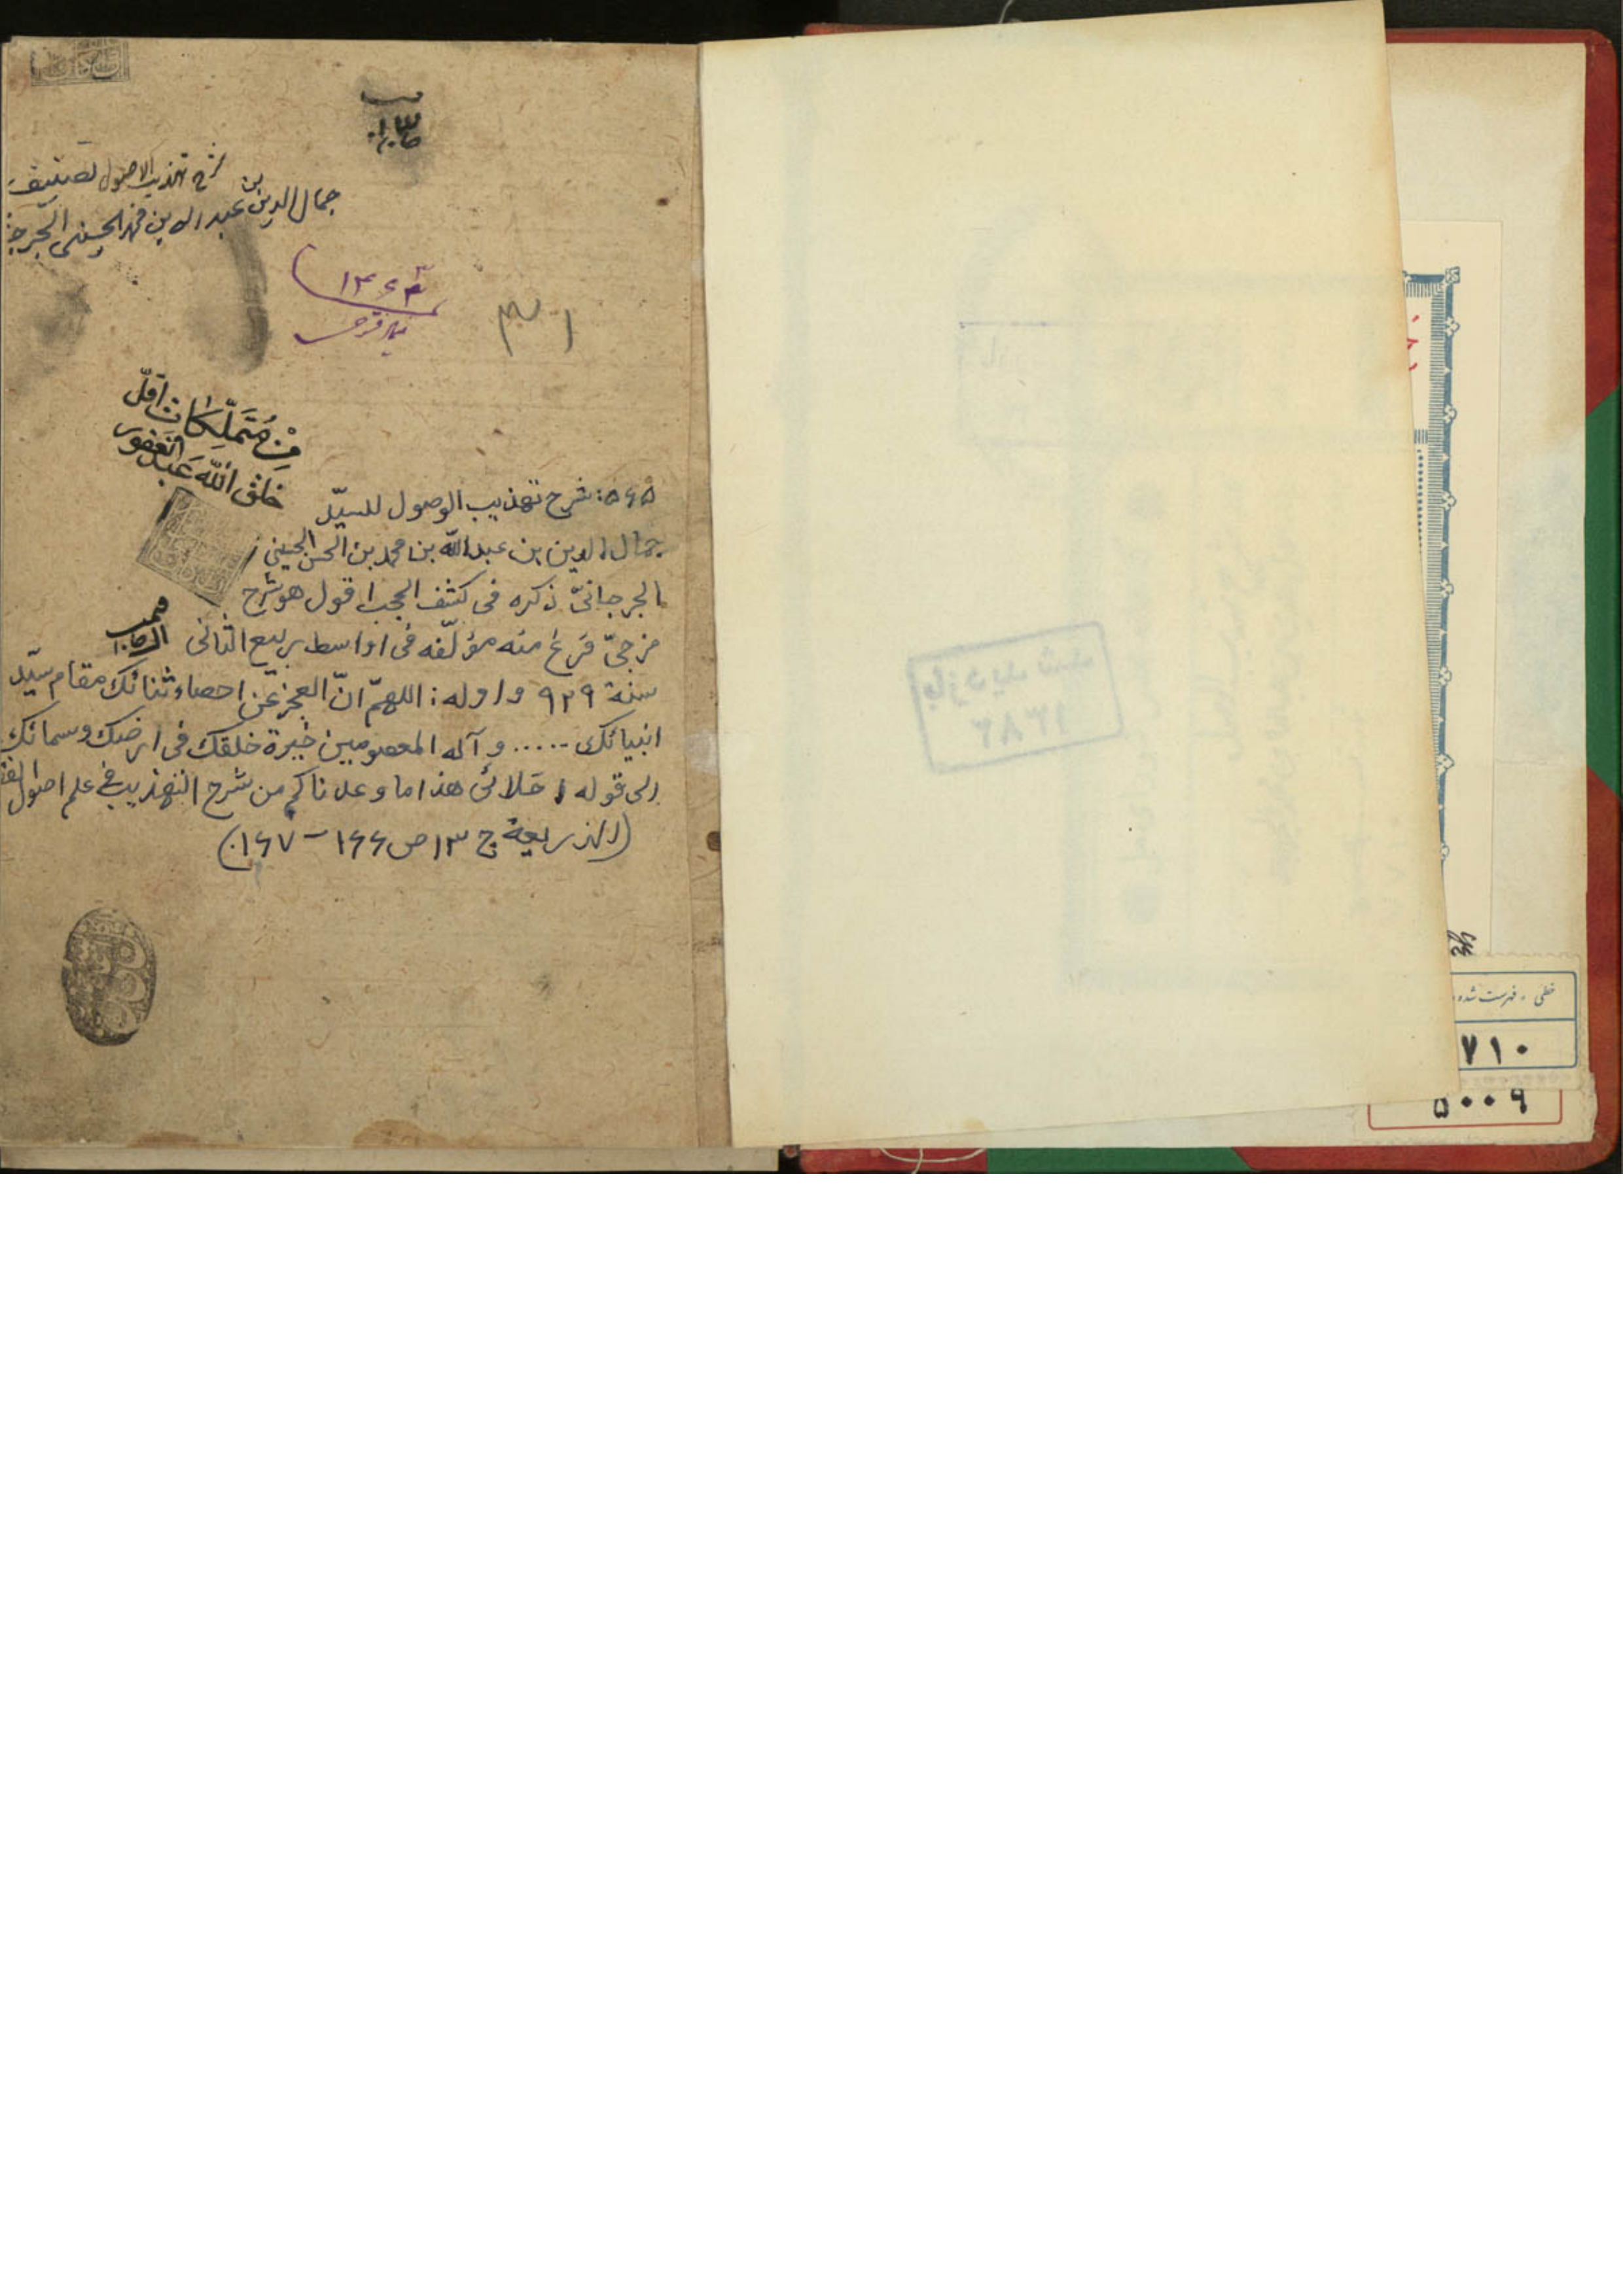 شرح تهذيب الاصول تصنيف
جمال الدين بن عبد الله بن محمد الحسينى
۱۴۶۳
۳۱
مِنْ مُتَمَلِّكَاتِ اَقَلّ
خلق الله عَبْدُ الغفور
۵۶۵: شرح تهذيب الوصول للسيّد
جمال الدين بن عبد الله بن محمد بن الحسن الحسينى
الجرجانىّ ذكره فى كشف الحجب اقول هو شرح
مزجىّ فرغ منه مؤلّفه فى اواسط ربيع الثانى
سنة ۹۲۹ و اوله: اللهمّ انّ العجز عن احصاء ثنائك مقام سيّد
انبيائك ..... و آله المعصومين خيرة خلقك فى ارضك و سمائك
الى قوله اخلائى هذا ما وعدناكم من شرح التهذيب فى علم اصول الفقه
(الذريعة ج ۱۳ ص ۱۶۶ – ۱۶۷)
بازدید شد
۱۳۸۲
خطی - فهرست شده
۷۱۰
۵۰۰۹